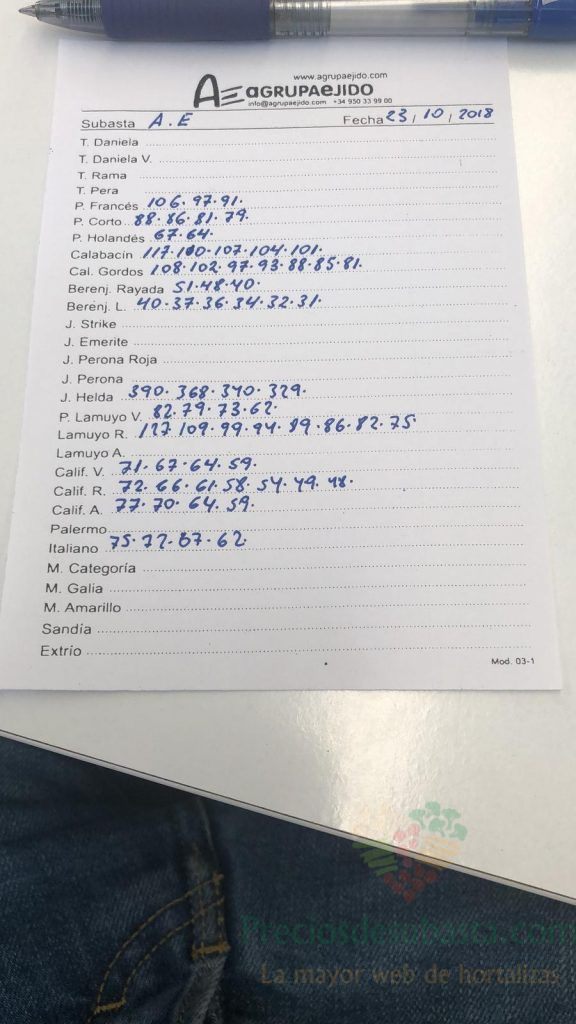 www.agrupaejido.com
AE aGRUPAeJIDO
info@agrupaejido.com +34 950 33 99 00
Subasta A.E Fecha 23/10/2018
T. Daniela
T. Daniela V.
T. Rama
T. Pera
P. Francés 106.97.91.
P. Corto 88.86.81.79.
P. Holandés 67.64.
Calabacín 117.110.107.104.101.
Cal. Gordos 108.102.97.93.88.85.81.
Berenj. Rayada 51.48.40.
Berenj. L. 40.37.36.34.32.31.
J. Strike
J. Emerite
J. Perona Roja
J. Perona
J. Helda 390.368.340.329.
P. Lamuyo V. 82.79.73.62.
Lamuyo R. 109.99.94.89.86.82.75.
Lamuyo A.
Calif. V. 71.67.64.59.
Calif. R. 72.66.61.58.54.49.48.
Calif. A. 77.70.64.59.
Palermo
Italiano 75.72.67.62.
M. Categoría
M. Galia
M. Amarillo
Sandía
Extrío
Mod. 03-1
Preciosdesubasta.com
La mayor web de hortalizas